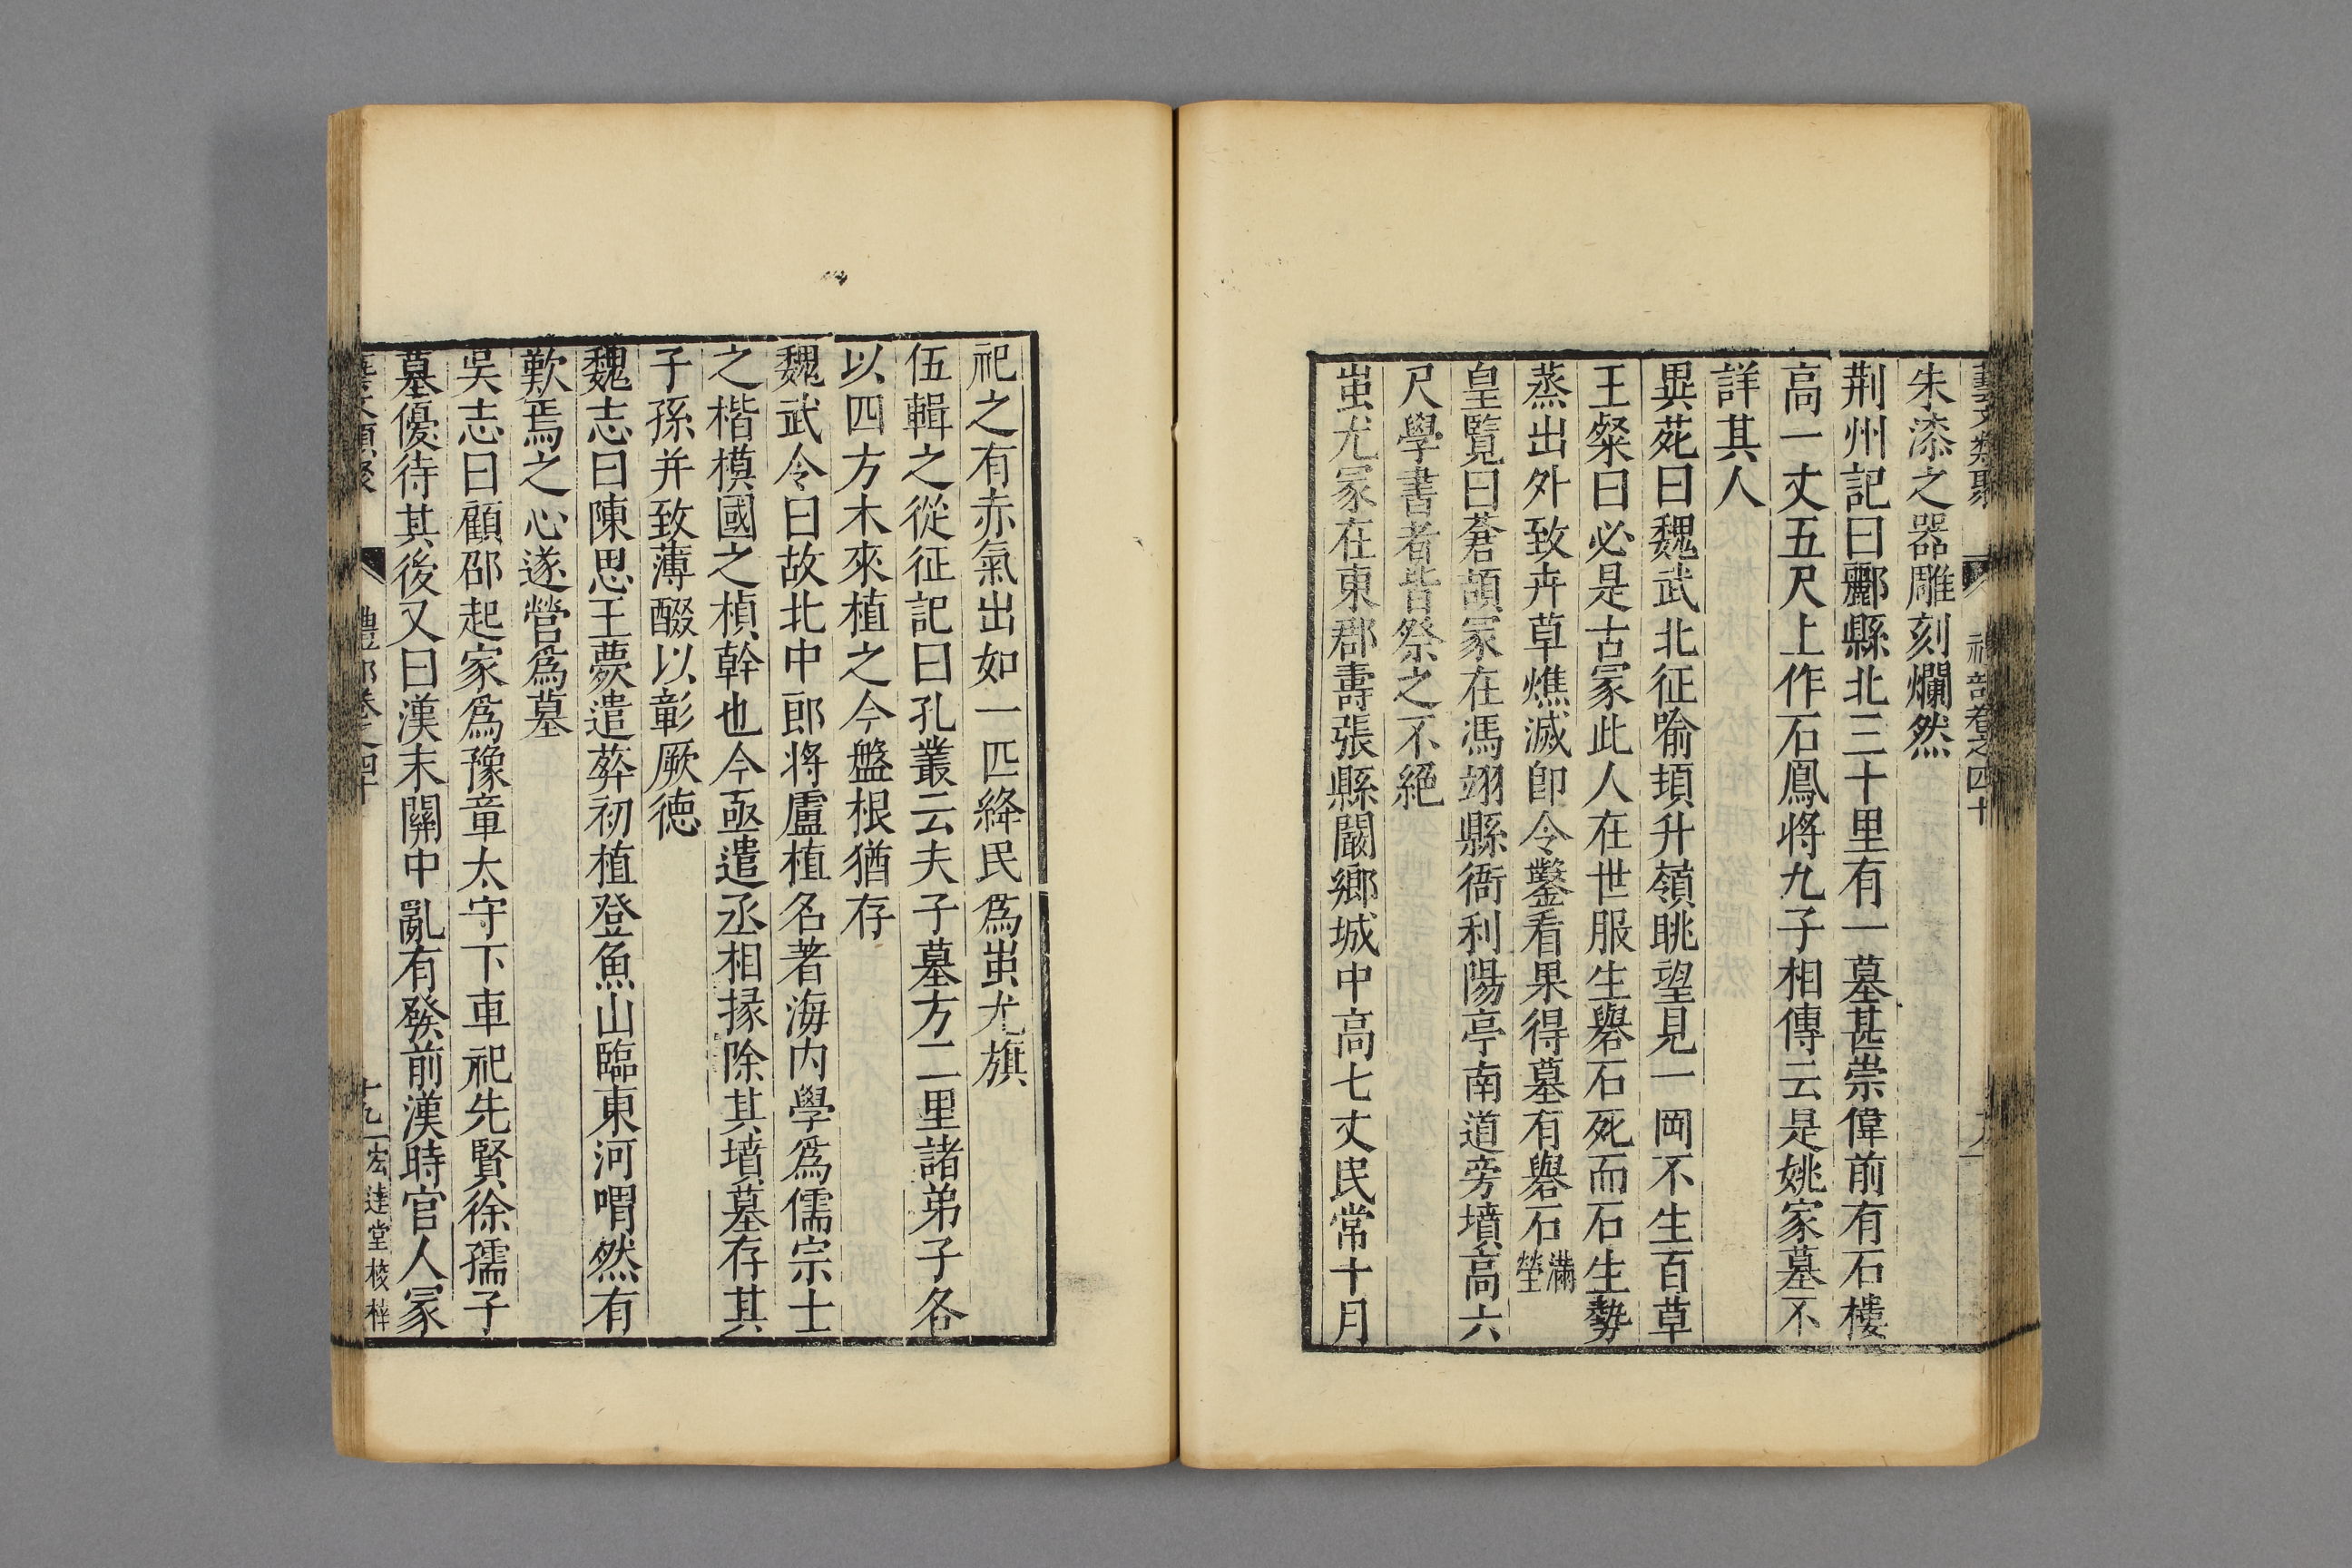 朱漆之器雕刻爛然
荆州記曰酈縣北三十里有一墓甚崇偉前有石樓
高一丈五尺上作石鳳将九子相傳云是姚家墓不
詳其人
異苑曰魏武北征喻頃升嶺眺望見一岡不生百草
王粲曰必是古冢此人在世服生礜石死而石生勢
蒸出外致卉草燋滅卽令鑿看果得墓有礜石滿塋
皇覽曰蒼頡冢在馮翊縣衙利陽亭南道旁墳高六
尺學書者皆祭之不絕
蚩尤冢在東郡夀張縣闞鄉城中高七丈民常十月
祀之有赤氣出如一匹絳民爲蚩尤旗
伍輯之從征記曰孔叢云夫子墓方二里諸弟子各
以四方木來植之今盤根猶存
魏武令曰故北中郎将盧植名著海内學爲儒宗士
之楷模國之楨幹也今亟遣丞相掾除其墳墓存其
子孫并致薄醊以彰厥德
魏志曰陳思王夢遣葬初植登魚山臨東河喟然有
歎焉之心遂營爲墓
吳志曰顧邵起家爲豫章太守下車祀先賢徐孺子
墓優待其後又曰漢末關中亂有發前漢時官人冢
宏達堂校梓